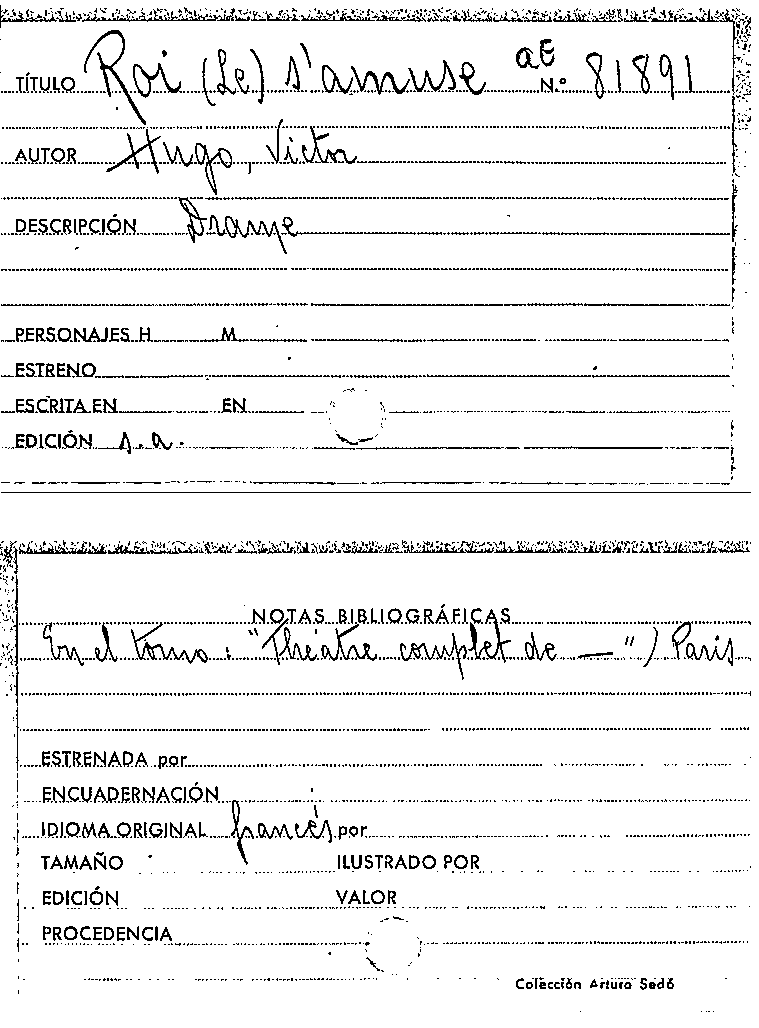 TÍTULO Roi (Le) s'amuse aE N.º 81891
AUTOR Hugo, Victor
DESCRIPCIÓN Drame
PERSONAJES H M
ESTRENO
ESCRITA EN EN
EDICIÓN s.a.
NOTAS BIBLIOGRÁFICAS
En el tomo: "Théatre complet de —") Paris
ESTRENADA por
ENCUADERNACIÓN
IDIOMA ORIGINAL francés por
TAMAÑO ILUSTRADO POR
EDICIÓN VALOR
PROCEDENCIA
Colección Arturo Sedó